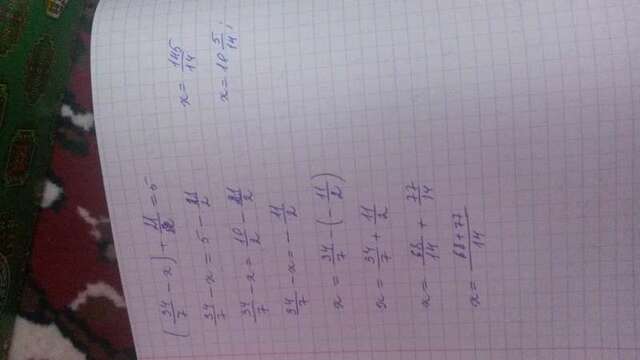 (34/7 - x) + 21/2 = 5
34/7 - x = 5 - 21/2
34/7 - x = 10/2 - 21/2
34/7 - x = - 11/2
x = 34/7 - (- 11/2)
x = 34/7 + 11/2
x = 68/14 + 77/14
x = 68+77/14
x = 145/14
x = 10 5/14;